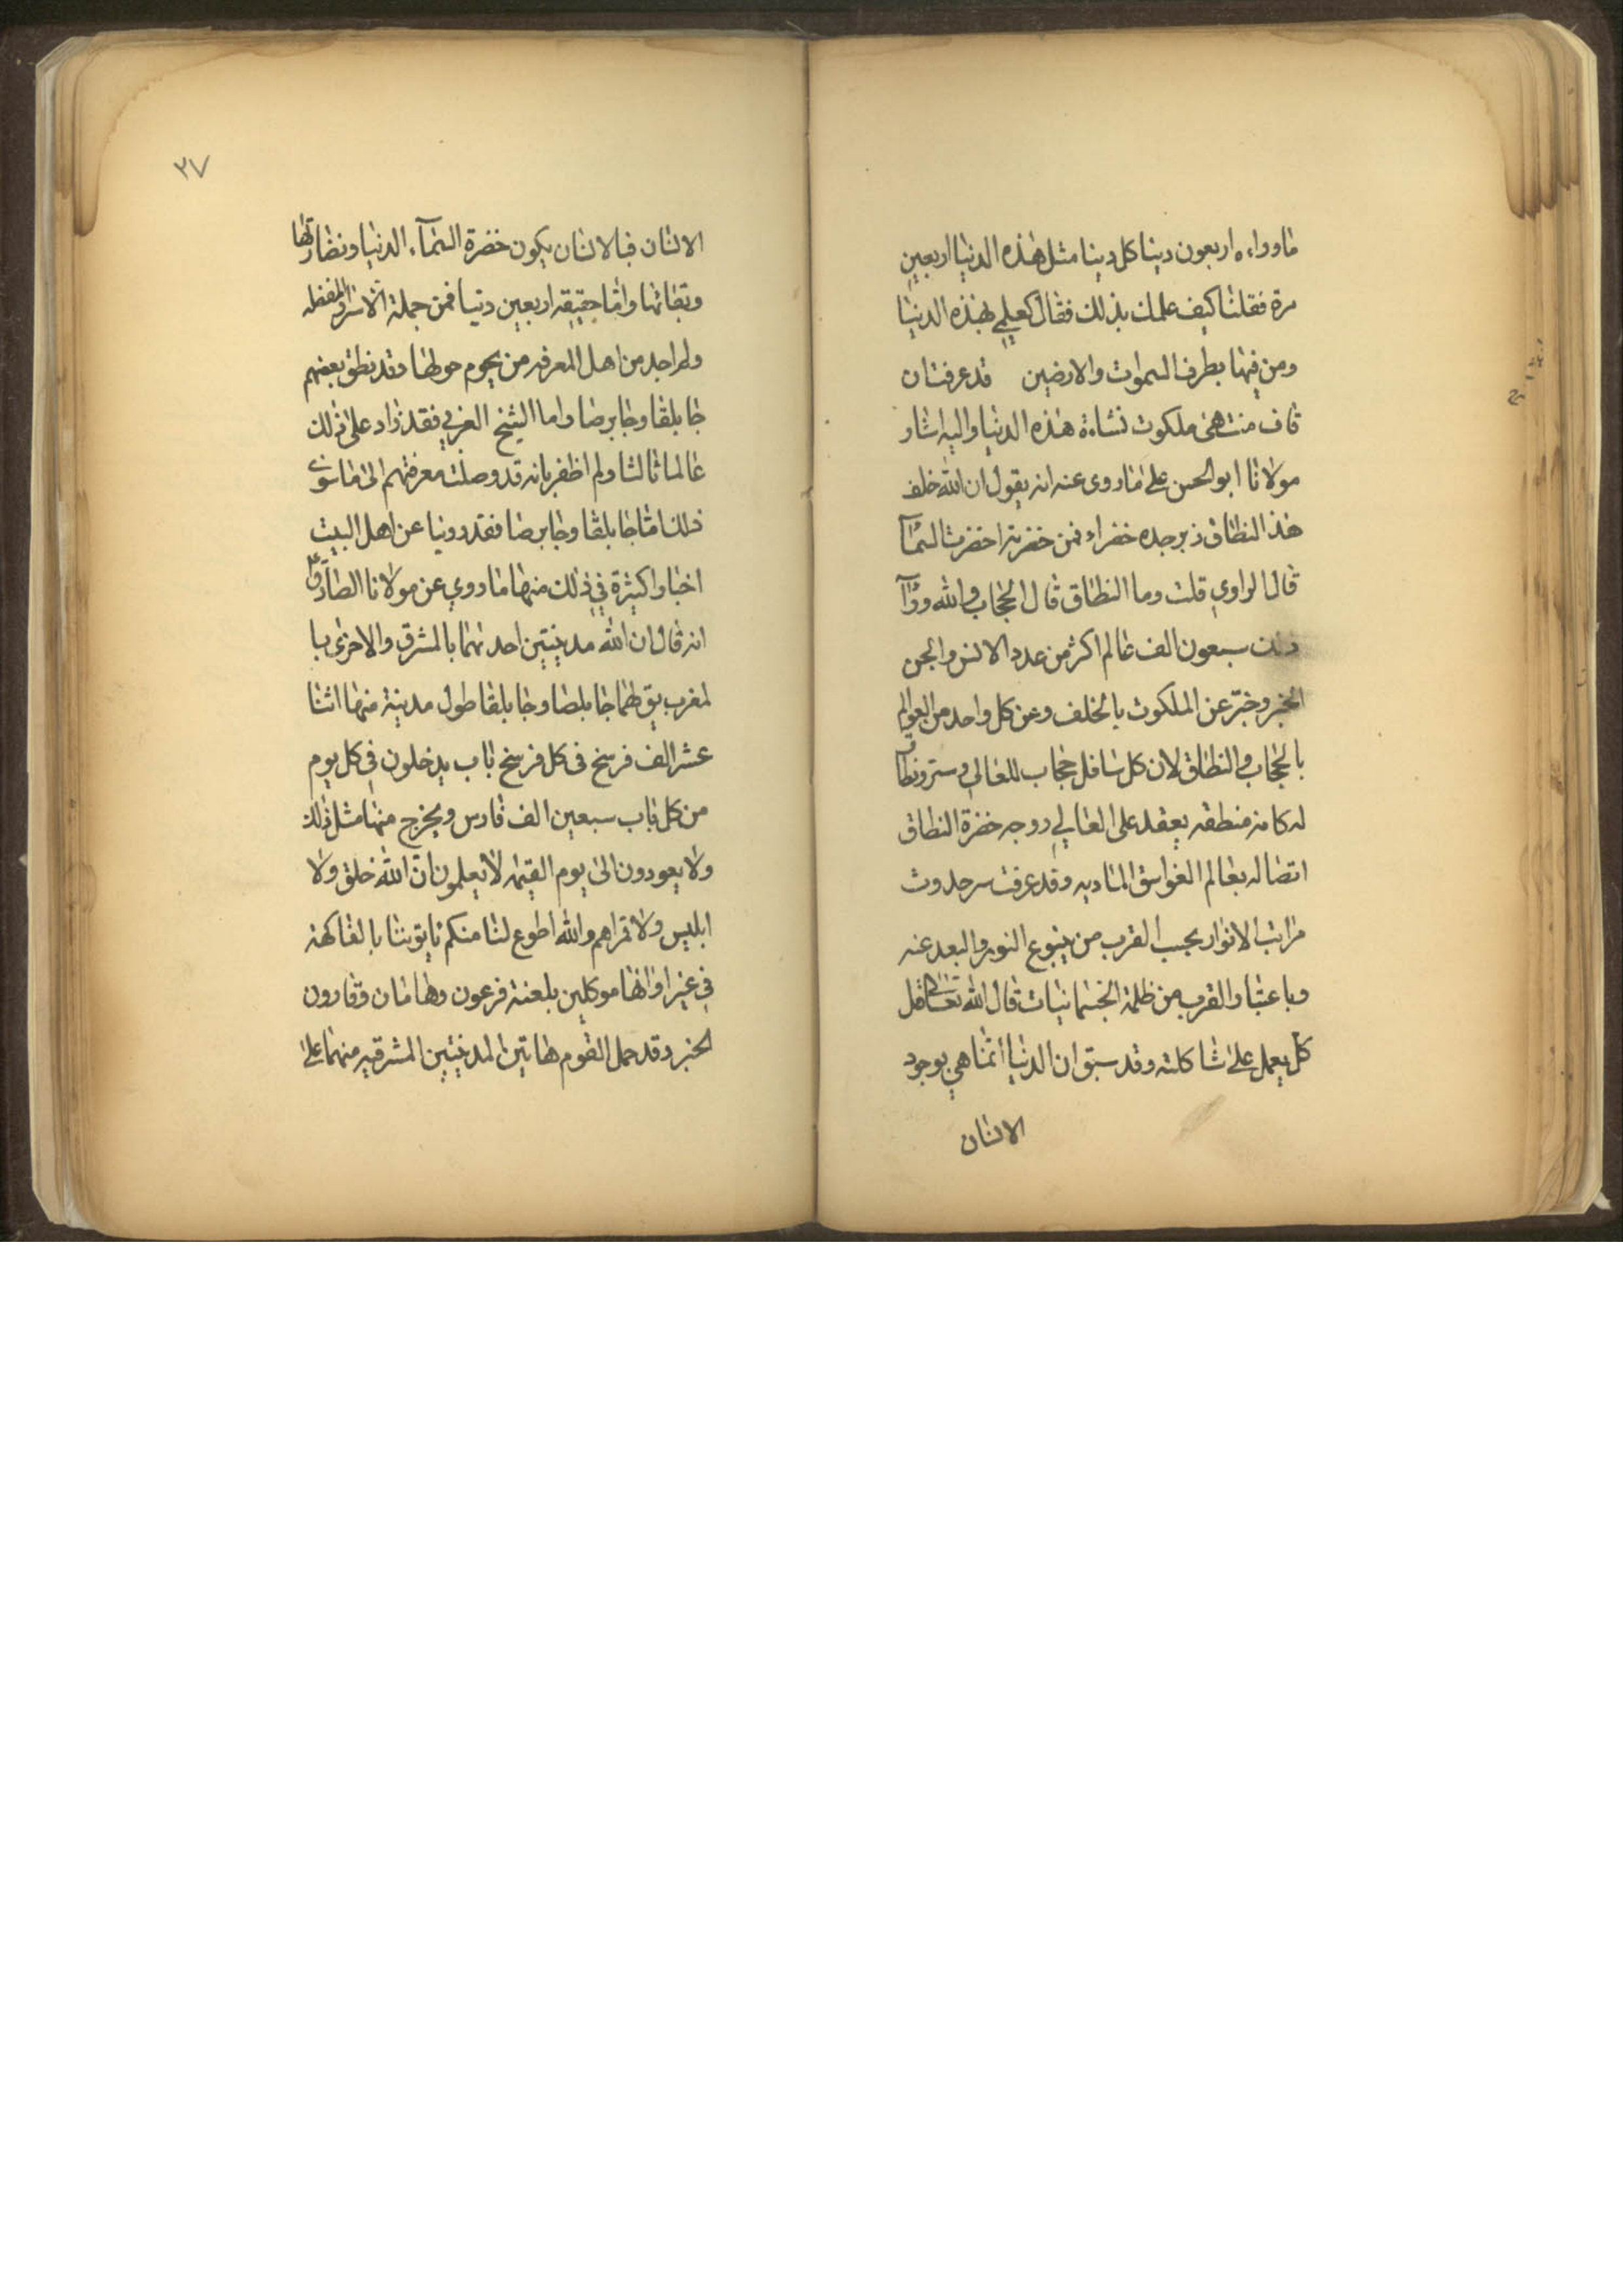 ما وراءه اربعون دينا كل دينا مثل هذه الدنيا اربعين
مرة فقلنا كيف علمك بذلك فقال كعلمي بهذه الدنيا
ومن فيها بطرف السموات والارضين قد عرفت ان
قاف منتهى ملكوت نشاءة هذه الدنيا واليه اشار
مولانا ابو الحسن على ما روى عنه انه يقول ان الله خلف
هذ النطاق زبرجده خضراء فمن خضرتها خضرت السماء
قال الراوي قلت وما النطاق قال الحجاب و لله وراء
ذلك سبعون الف عالم اكثر من عدد الانس والجن
الخبر وخبّر عن الملكوت بالخلف وعن كل واحد من العوالم
بالحجاب والنطاق لان كل سافل حجاب للعالي وستر ونطاق
له كانه منطقه يعقد على العالي ووجه خضرة النطاق
اتصاله بعالم الغواسق الماديه وقد عرفت سر حدوث
مراتب الانوار بحسب القرب من ينبوع النور والبعد عنه
وباعتبار القرب من ظلمة الجسمانيات قال الله تعالى قل
كل يعمل على شاكلته وقد سبق ان الدنيا انما هي بوجود
الانسان
٣٧
الانسان فبالانسان يكون خضرة السماء الدنيا ونضارتها
وبقائها واما حقيقه اربعين دنيا فمن جملة الاسرار
ولم اجد من اهل المعرفه من يحوم حولها وقد نطق بعضهم
جابلقا وجابرصا واما الشيخ العربي فقد زاد على ذلك
عالما ثالثا ولم اظفر بانه قد وصلت معرفتهم الى ما سوى
ذلك اما جابلقا وجابرصا فقد روينا عن اهل البيت
اخبار كثيرة في ذلك منها ما روي عن مولانا الصادق ع
انه قال ان لله مدينتين احدتهما بالمشرق والاخرى با
لمغرب يق لهما جابلصا وجابلقا طول مدينة منها اثنا
عشر الف فرسخ في كل فرسخ باب يدخلون في كل يوم
من كل باب سبعين الف فارس ويخرج منها مثل ذلك
ولا يعودون الى يوم القيمه لا يعلمون ان الله خلق ولا
ابليس ولا قمر اهم والله اطوع لنا منكم ياتوننا بالفاكهة
في غير اوانها موكلين بلعنة فرعون وهامان وقارون
الخبر وقد حمل القوم هاتين المدينتين المشرقيه منهما على